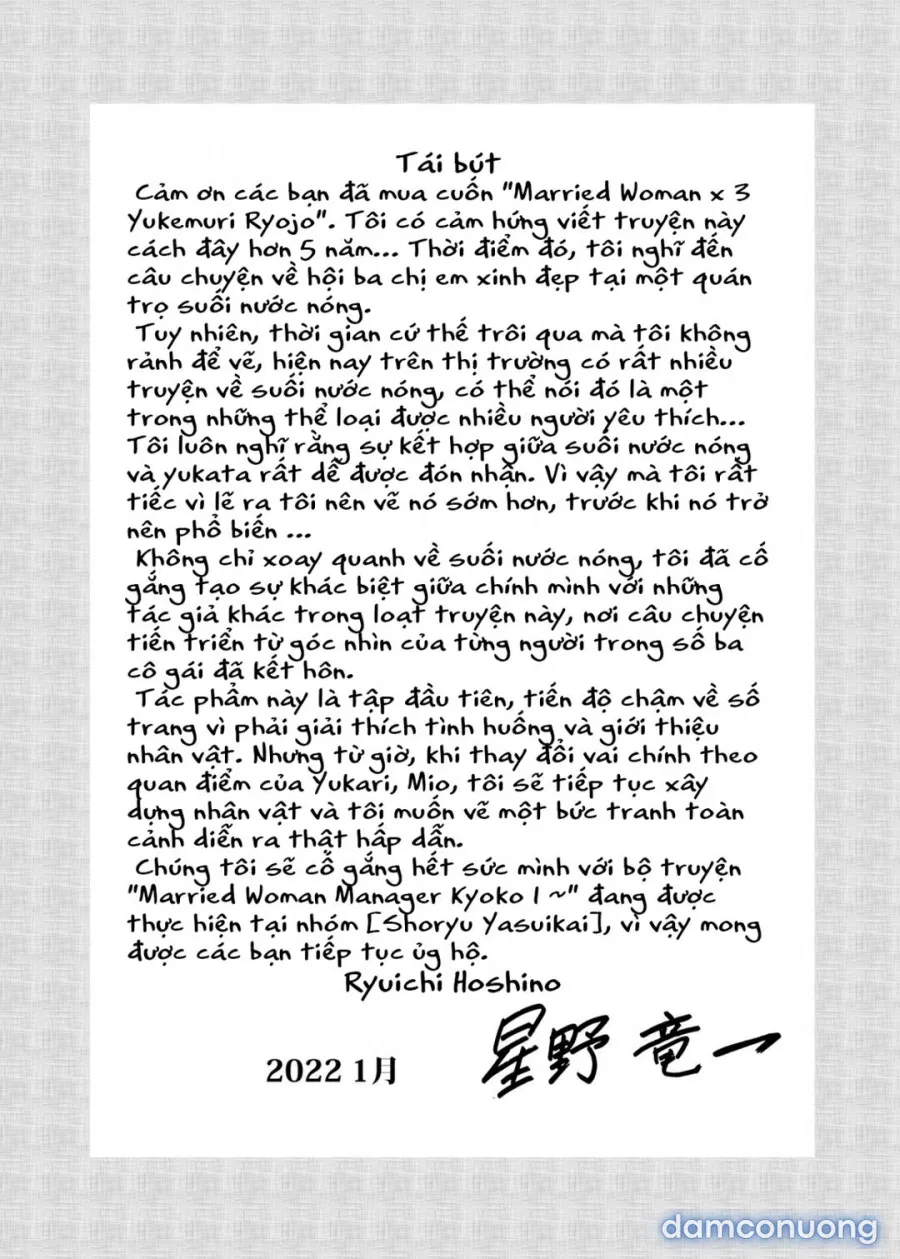 Tái bút
Cảm ơn các bạn đã mua cuốn "Married Woman x 3
Yukemuri Ryojo". Tôi có cảm hứng viết truyện này
cách đây hơn 5 năm... Thời điểm đó, tôi nghĩ đến
câu chuyện về hội ba chị em xinh đẹp tại một quán
trọ suối nước nóng.
Tuy nhiên, thời gian cứ thế trôi qua mà tôi không
rảnh để vẽ, hiện nay trên thị trường có rất nhiều
truyện về suối nước nóng, có thể nói đó là một
trong những thể loại được nhiều người yêu thích...
Tôi luôn nghĩ rằng sự kết hợp giữa suối nước nóng
và yukata rất dễ được đón nhận. Vì vậy mà tôi rất
tiếc vì lẽ ra tôi nên vẽ nó sớm hơn, trước khi nó trở
nên phổ biến ...
Không chỉ xoay quanh về suối nước nóng, tôi đã cố
gắng tạo sự khác biệt giữa chính mình với những
tác giả khác trong loạt truyện này, nơi câu chuyện
tiến triển từ góc nhìn của từng người trong số ba
cô gái đã kết hôn.
Tác phẩm này là tập đầu tiên, tiến độ chậm về số
trang vì phải giải thích tình huống và giới thiệu
nhân vật. Nhưng từ giờ, khi thay đổi vai chính theo
quan điểm của Yukari, Mio, tôi sẽ tiếp tục xây
dựng nhân vật và tôi muốn vẽ một bức tranh toàn
cảnh diễn ra thật hấp dẫn.
Chúng tôi sẽ cố gắng hết sức mình với bộ truyện
"Married Woman Manager Kyoko 1 ~" đang được
thực hiện tại nhóm [Shoryu Yasuikai], vì vậy mong
được các bạn tiếp tục ủg hộ.
Ryuichi Hoshino
星野 竜一
2022 1月
damconuong